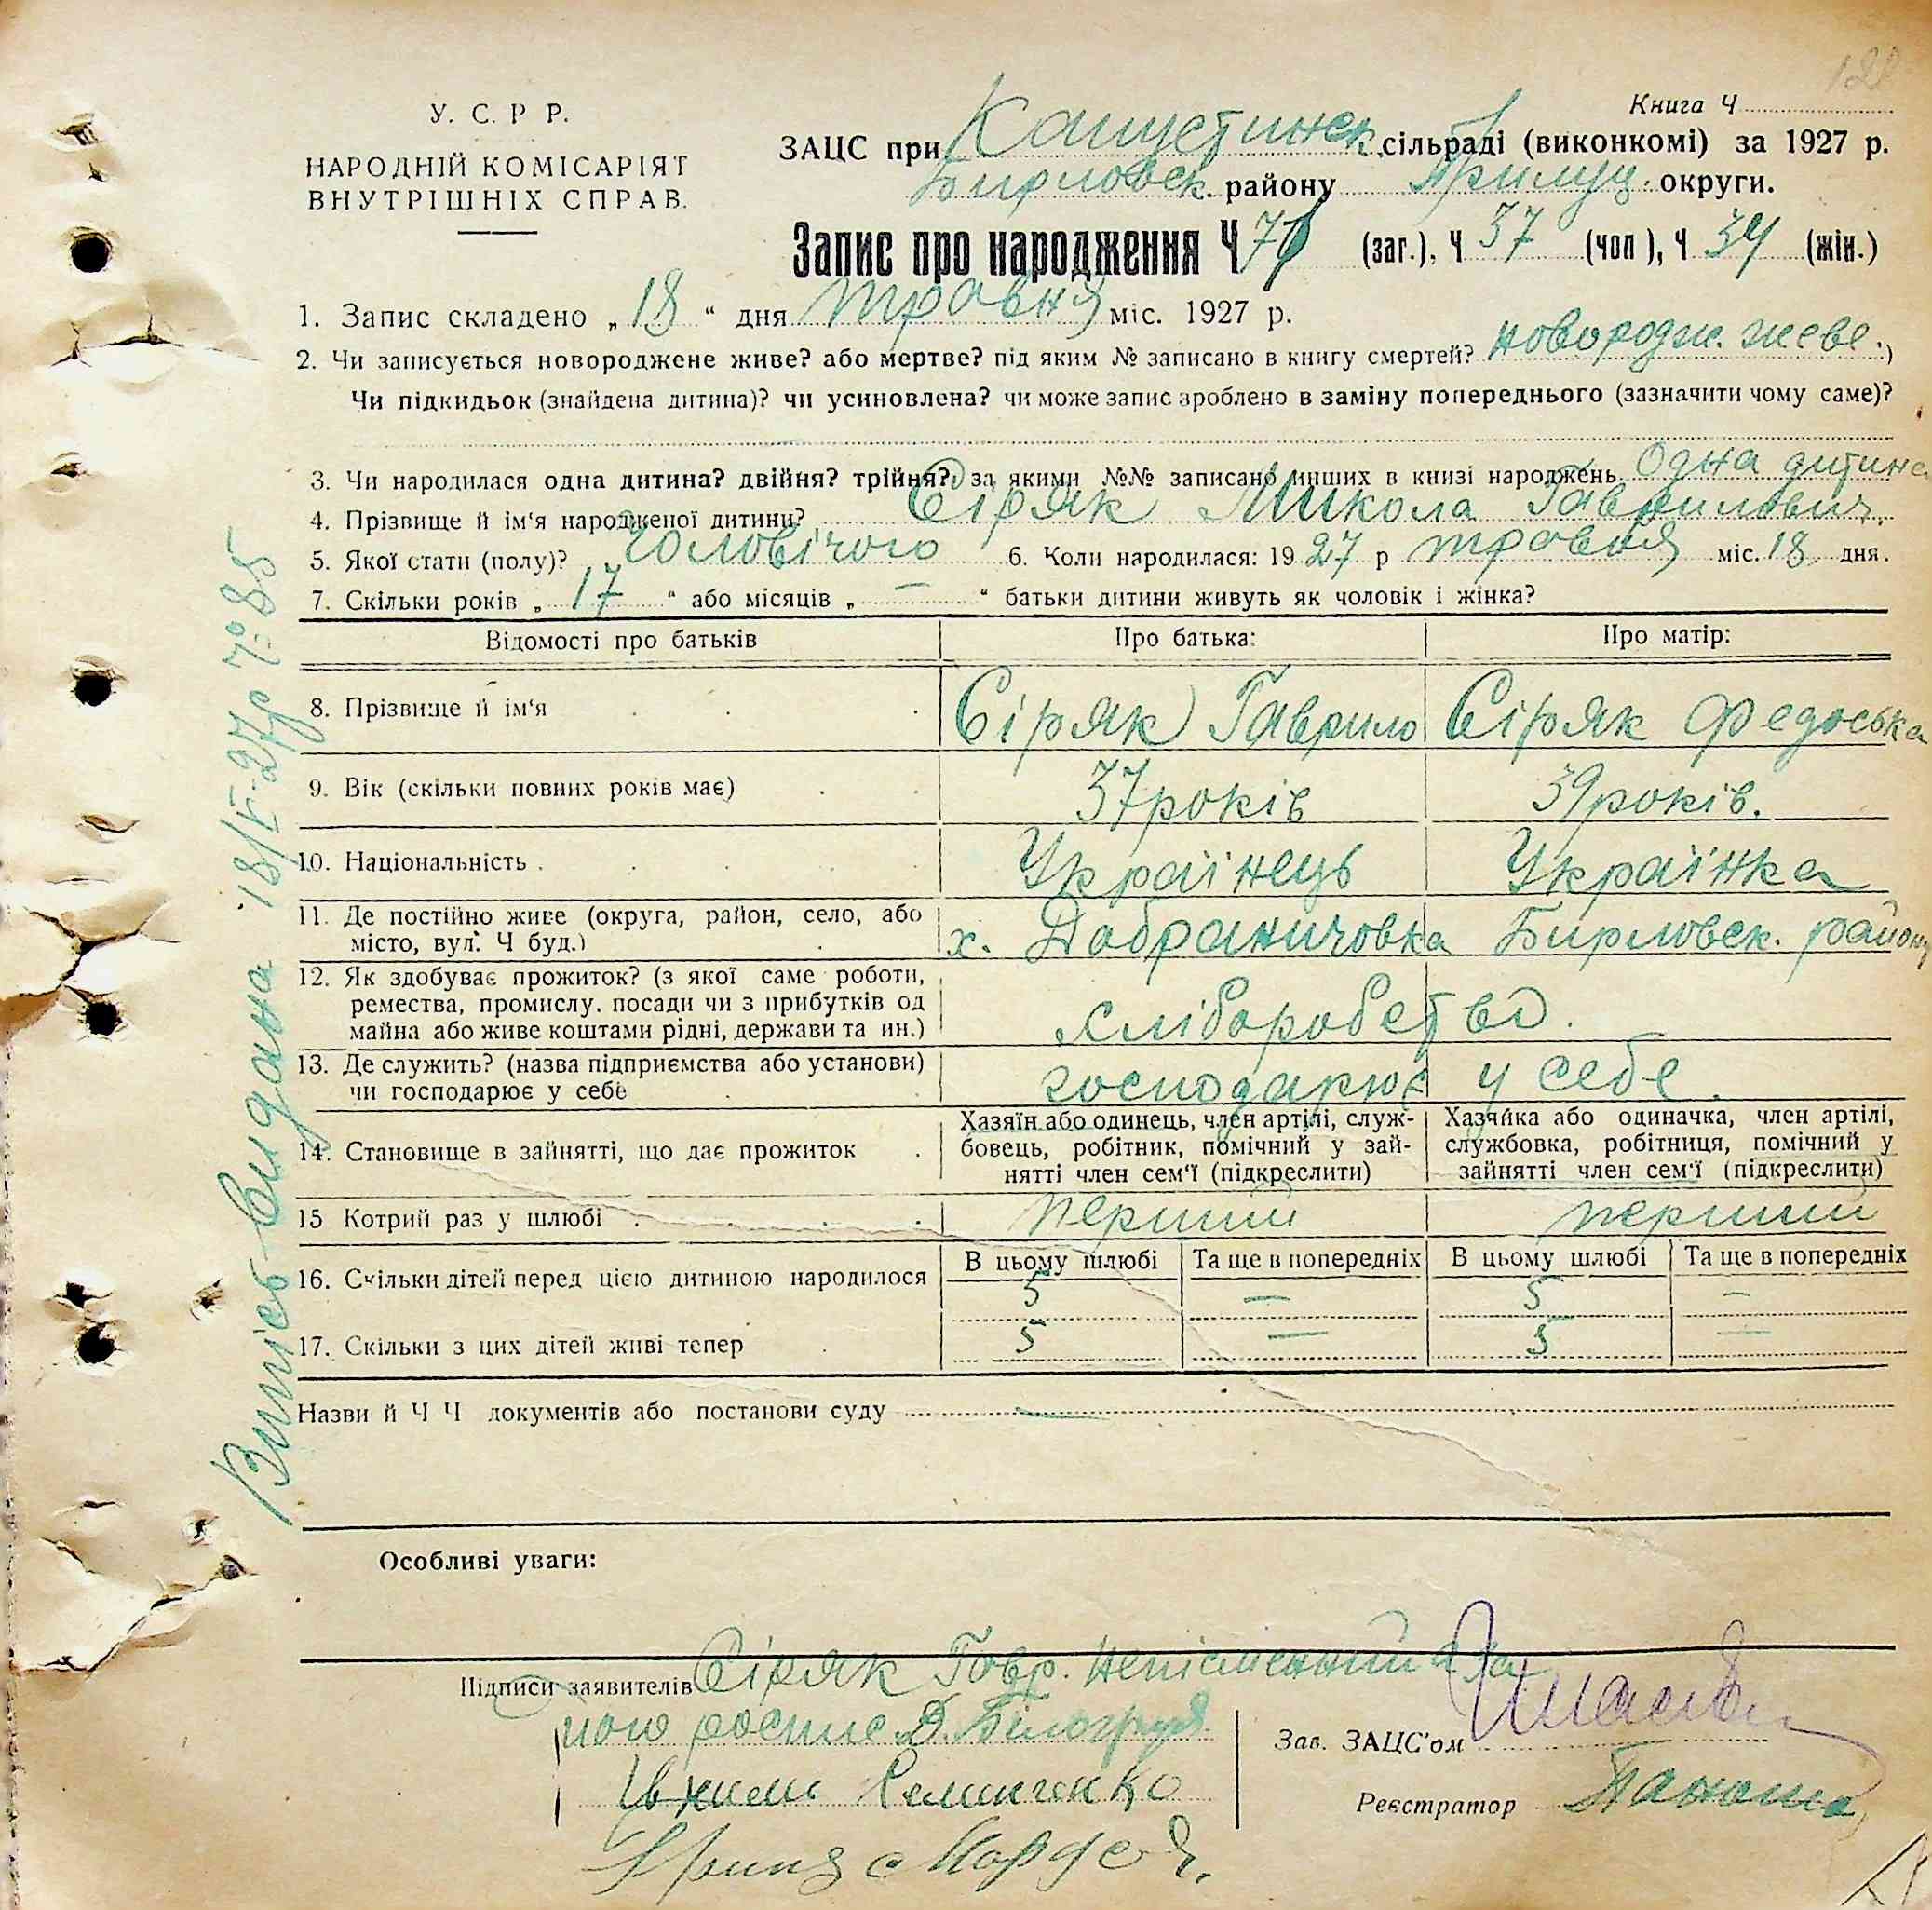 120
Книга Ч
У. С. Р Р.
НАРОДНІЙ КОМІСАРІЯТ
ВНУТРІШНІХ СПРАВ.
ЗАЦС при Капустинск. сільраді (виконкомі) за 1927 р.
Бирловск. району Прилуц. округи.
Запис про народження Ч 71 (заг.), Ч 37 (чол), Ч 34 (жін.)
1. Запис складено „18“ дня травня міс. 1927 р.
2. Чи записується новороджене живе? або мертве? під яким № записано в книгу смертей? новородж. живе.)
Чи підкидьок (знайдена дитина)? чи усиновлена? чи може запис зроблено в заміну попереднього (зазначити чому саме)?
3. Чи народилася одна дитина? двійня? трійня? за якими №№ записано инших в книзі народжень. Одна дитина
4. Прізвище й ім'я народженої дитини? Сіряк Микола Гаврилович.
5. Якої стати (полу)? чоловічого 6. Коли народилася: 1927 р травня міс. 18 дня.
7. Скільки років „17“ або місяців „—“ батьки дитини живуть як чоловік і жінка?
Відомості про батьків Про батька: Про матір:
8. Прізвище й ім'я Сіряк Гаврило Сіряк Федоська
9. Вік (скільки повних років має) 37 років 39 років.
10. Національність Українець Українка
11. Де постійно живе (округа, район, село, або
місто, вул. Ч буд.) х. Добраничовка Бирловск. району
12. Як здобуває прожиток? (з якої саме роботи,
ремества, промислу, посади чи з прибутків од
майна або живе коштами рідні, держави та ин.) хліборобство.
13. Де служить? (назва підприємства або установи)
чи господарює у себе господарює у себе
14. Становище в зайнятті, що дає прожиток
Хазяїн або одинець, член артілі, служ-
бовець, робітник, помічний у зай-
нятті член сем'ї (підкреслити)
Хазяйка або одиначка, член артілі,
службовка, робітниця, помічний у
зайнятті член сем'ї (підкреслити)
15 Котрий раз у шлюбі перший перший
В цьому шлюбі Та ще в попередніх В цьому шлюбі Та ще в попередніх
16. Скільки дітей перед цією дитиною народилося 5 — 5 —
17. Скільки з цих дітей живі тепер 5 — 5 —
Назви й Ч Ч документів або постанови суду —
Особливі уваги:
Підписи заявителів Сіряк Гавр. непісменний а за
його роспис Д. Білогруд.
Зав. ЗАЦС'ом
Реєстратор
Випісь видана 18/V-27р № 85